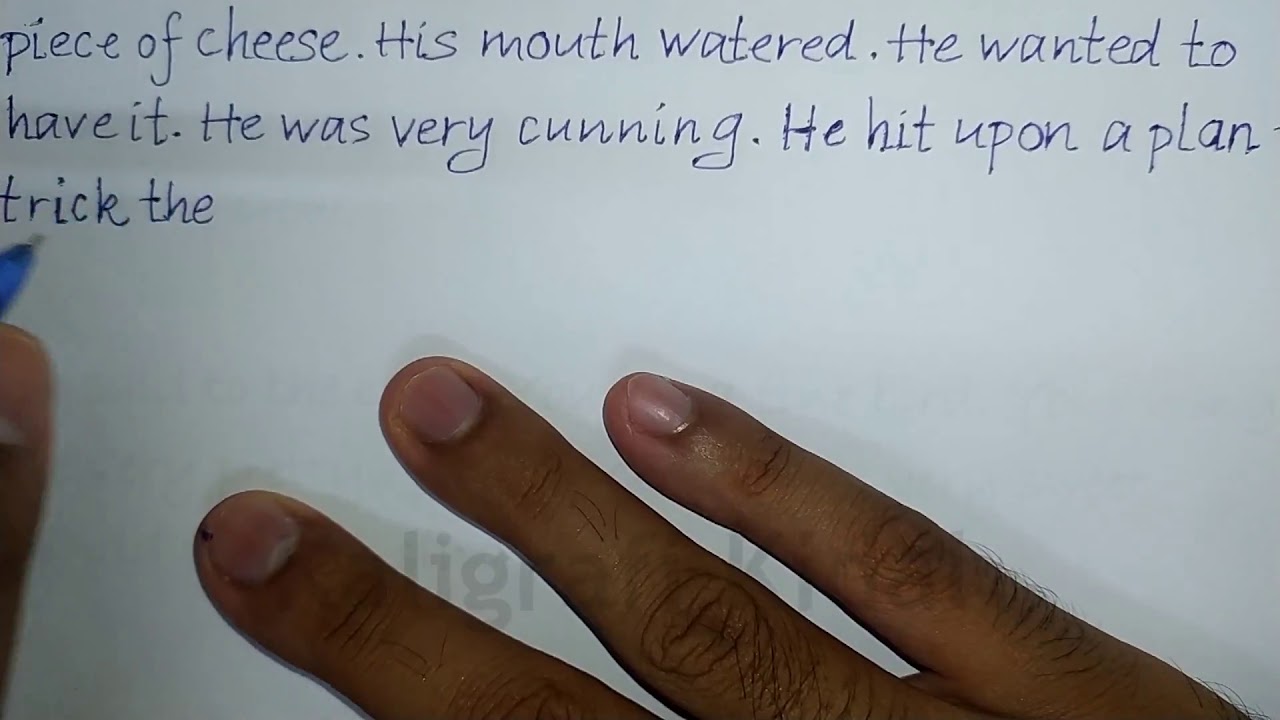 piece of cheese. His mouth watered. He wanted to
have it. He was very cunning. He hit upon a plan
trick the